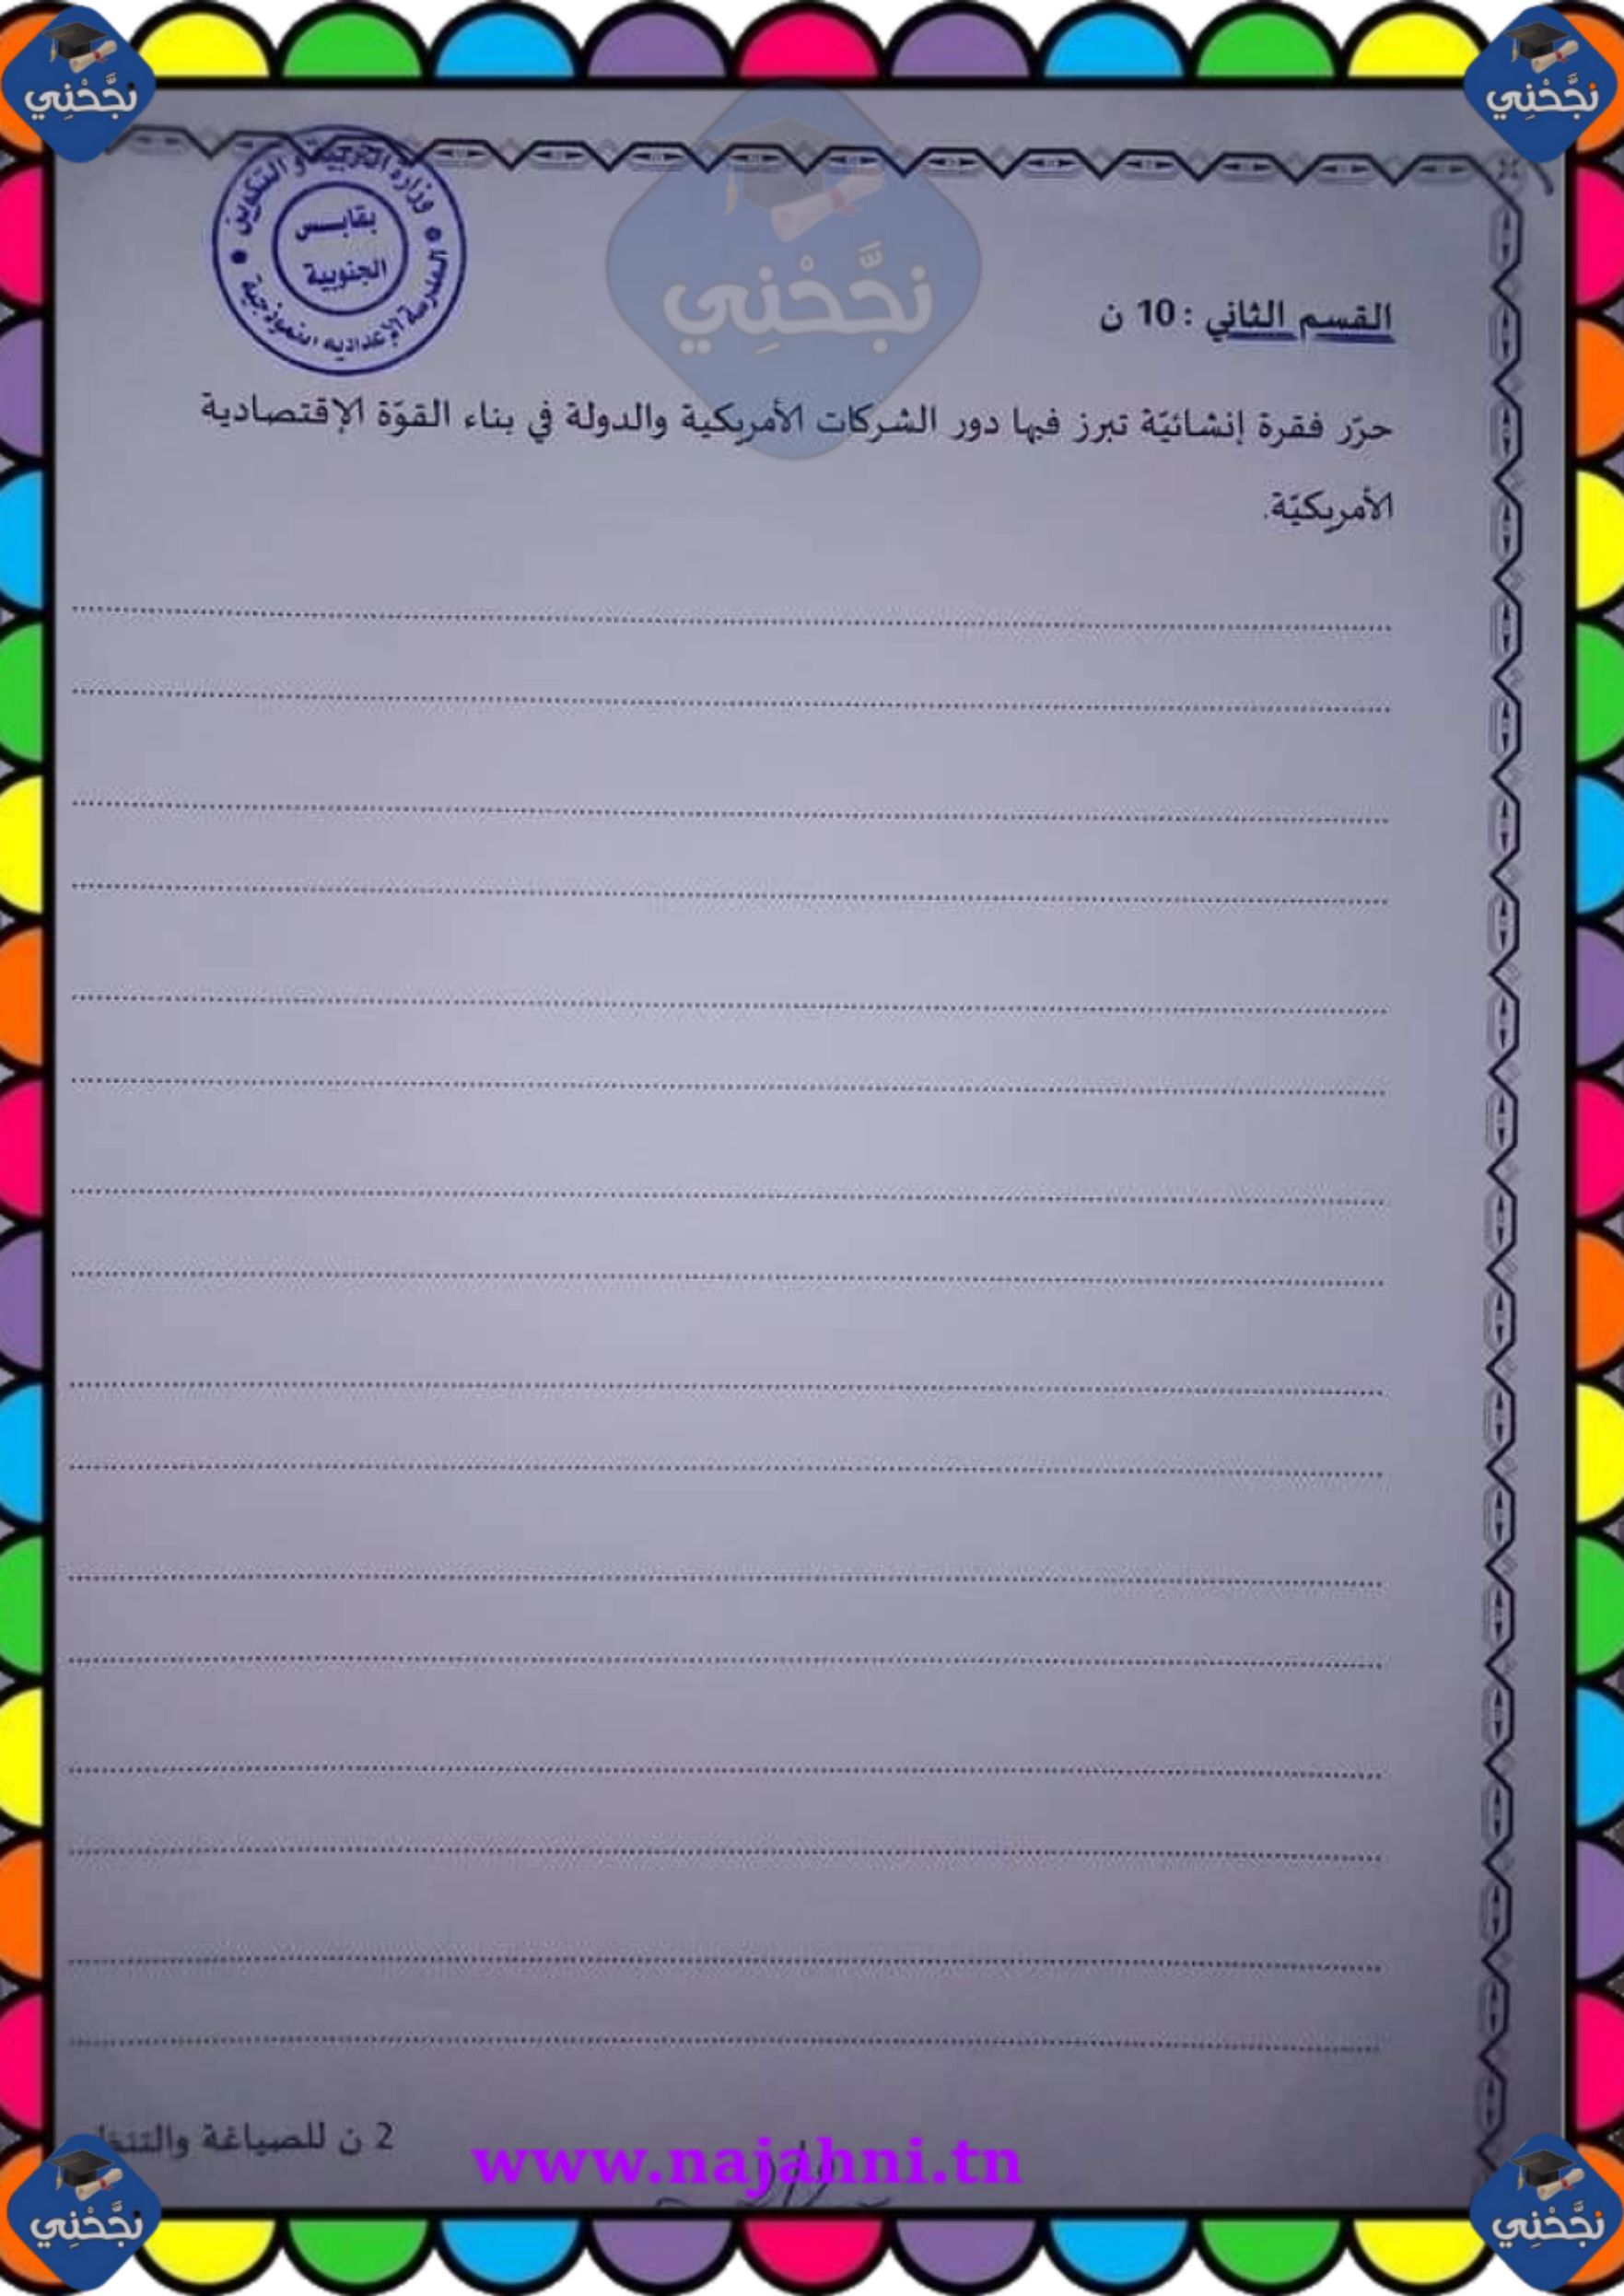 نجّحْنِي
نجّحْنِي
نجّحْنِي
وزارة التربية و التكوين
المدرسة الإعدادية النموذجية
بقابس
الجنوبية
القسم الثاني : 10 ن
حرّر فقرة إنشائيّة تبرز فيها دور الشركات الأمريكية والدولة في بناء القوّة الإقتصادية
الأمريكيّة.
2 ن للصياغة
www.najahni.tn
نجّحْنِي
نجّحْنِي